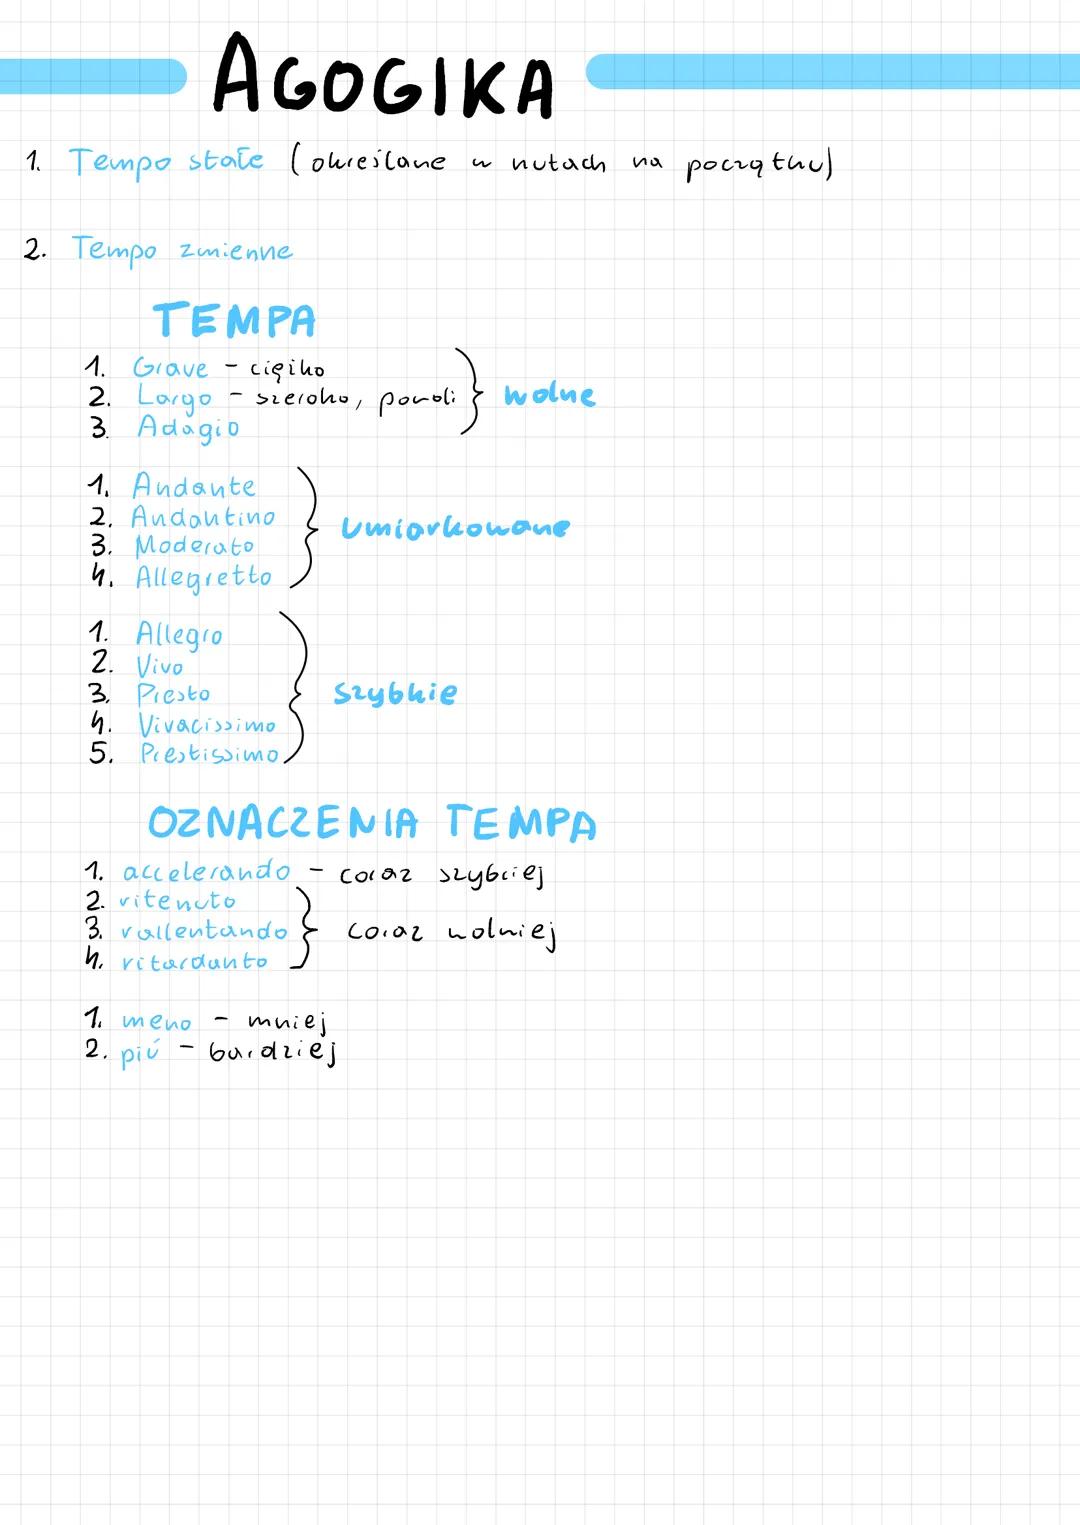 AGOGIKA
1. Tempo stałe (określane w nutach na początku)
2. Tempo zmienne
TEMPA
1. Grave - ciężko
2. Largo - szeroko, powoli
3. Adagio
wolne
1. Andante
2. Andantino
3. Moderato
4. Allegretto
Umiarkowane
1. Allegro
2. Vivo
3. Presto
4. Vivacissimo
5. Prestissimo
Szybkie
OZNACZENIA TEMPA
1. accelerando - coraz szybciej
2. ritenuto
3. rallentando
4. ritardanto
coraz wolniej
1. meno - mniej
2. piú - bardziej